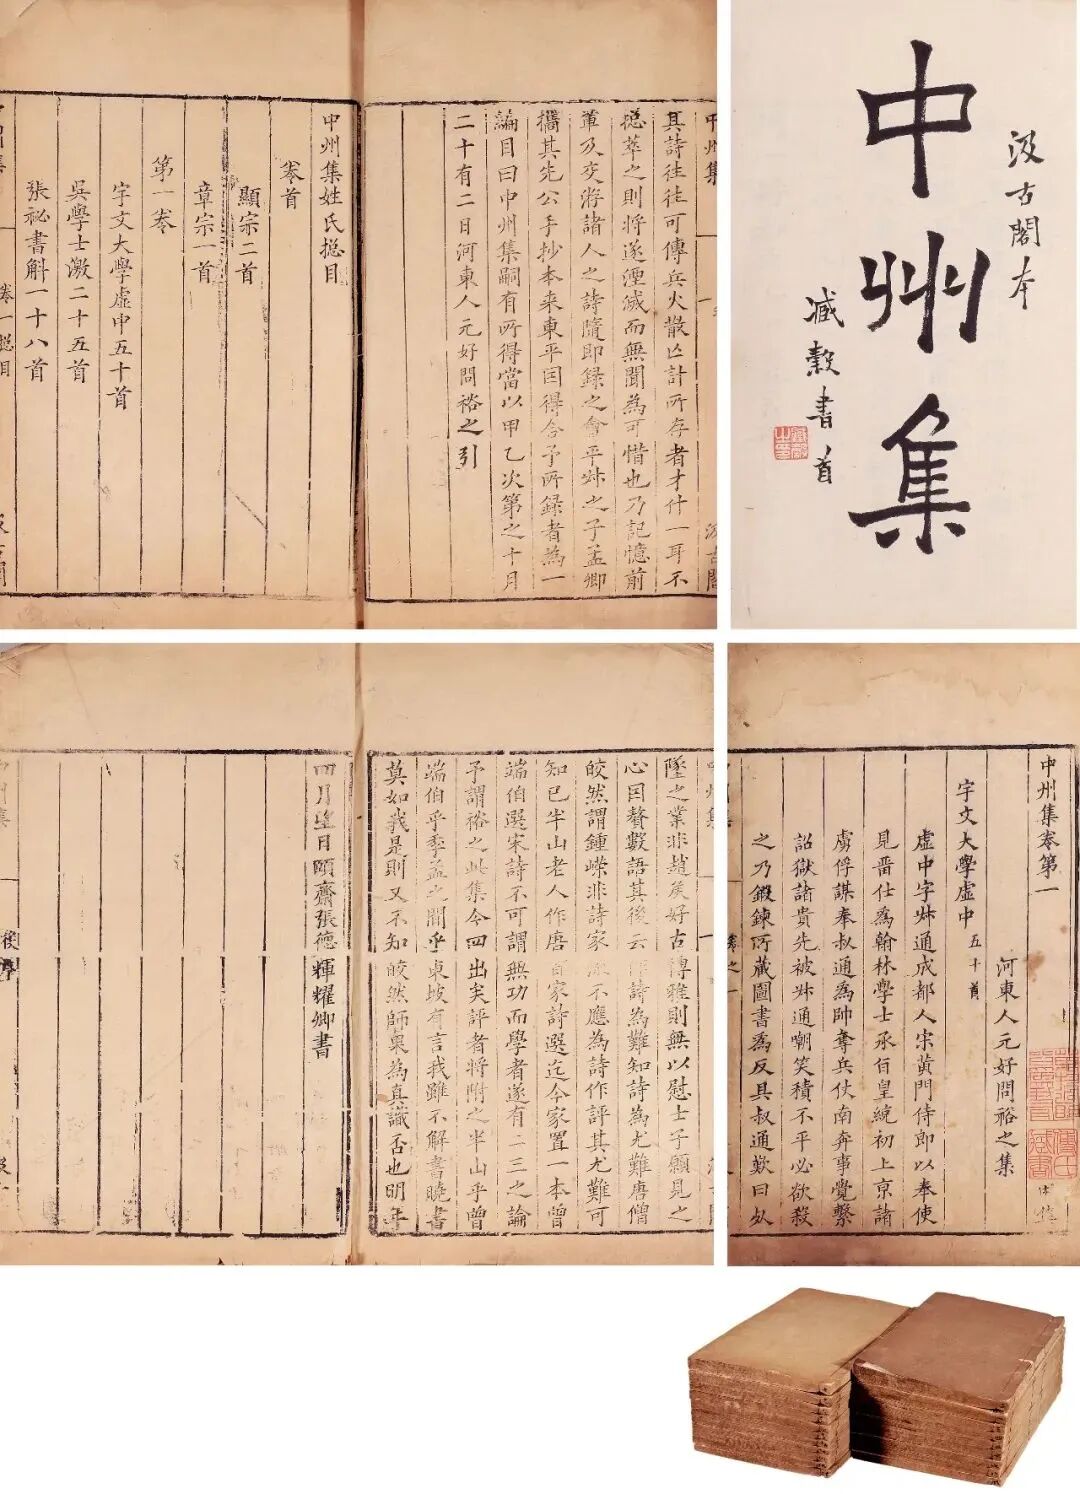 其詩往往可傳兵火散亡計所存者才什一耳不
揔萃之則將遂湮滅而無聞為可惜也乃記憶前
輩及交游諸人之詩隨即録之會平叔之子孟卿
攜其先公手抄本来東平因得合予所録者為一
編目曰中州集嗣有所得當以甲乙次第之十月
二十有二日河東人元好問裕之引
中州集姓氏揔目
卷首
顯宗二首
章宗一首
第一卷
宇文大學虛中五十首
吳學士激二十五首
張祕書斛一十八首
卷一揔目
汲古閣本
中州集
臧穀書首
墜之業非趙矦好古博雅則無以慰士子願見之
心因贅數語其後云作詩為難知詩為尤難唐僧
皎然謂鍾嶸非詩家流不應為詩作評其尤難可
知已半山老人作唐百家詩選迄今家置一本曾
端伯選宋詩不可謂無功而學者遂有二三之論
予謂裕之此集今四出矣評者將附之半山乎曾
端伯乎季孟之間乎東坡有言我雖不解書曉書
莫如我是則又不知皎然師果為真識否也明年
四月望日頤齋張德輝耀卿書
後序
中州集卷第一
河東人元好問裕之集
宇文大學虛中五十首
虛中字叔通成都人宋黃門侍郎以奉使
見畱仕爲翰林學士承旨皇統初上京諸
虜俘謀奉叔通爲帥奪兵仗南奔事覺繫
詔獄諸貴先被叔通嘲笑積不平必欲殺
之乃鍛鍊所藏圖書爲反具叔通歎曰死
卷之一